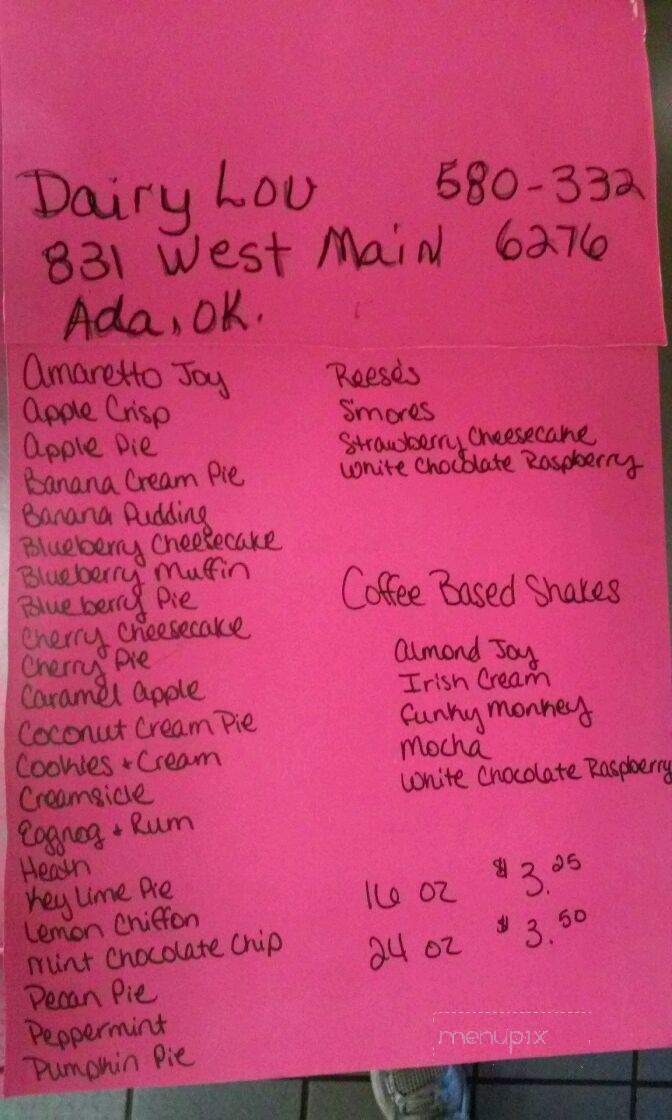 Dairy Lou 580-332
831 West Main 6276
Ada, OK.
Amaretto Joy
Apple Crisp
Apple Pie
Banana Cream Pie
Banana Pudding
Blueberry Cheesecake
Blueberry Muffin
Blueberry Pie
Cherry Cheesecake
Cherry Pie
Caramel Apple
Coconut Cream Pie
Cookies + Cream
Creamsicle
Eggnog + Rum
Heath
Key Lime Pie
Lemon Chiffon
Mint Chocolate Chip
Pecan Pie
Peppermint
Pumpkin Pie
Reese's
S'mores
Strawberry Cheesecake
White Chocolate Raspberry
Coffee Based Shakes
Almond Joy
Irish Cream
Funky Monkey
Mocha
White Chocolate Raspberry
16 oz $3.25
24 oz $3.50
menupix